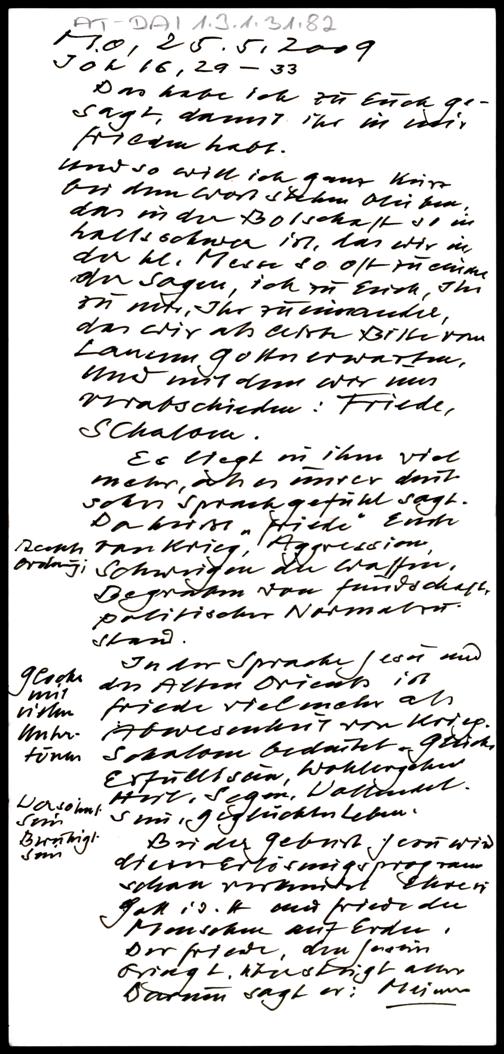 AT-DAI 1.3.1.31.82
Mo, 25.5.2009
Joh 16, 29 – 33
Das habe ich zu Euch ge-
sagt, damit ihr in mir
Frieden habt.
Und so will ich ganz kurz
bei dem Wort stehen bleiben,
das in der Botschaft so in
haltsschwer ist, das wir in
der hl. Messe so oft zu einan
der sagen, ich zu Euch, Ihr
zu mir, Ihr zueinander,
das wir als letzte Bitte vom
Lamm Gottes erwarten,
und mit dem wir uns
verabschieden: Friede,
Schalom.
Es liegt in ihm viel
mehr, als es unser deut
sches Sprachgefühl sagt.
Da heisst „Friede" Ende
von Krieg, Aggression,
Rechts
ordnung;
Schweigen der Waffen,
Begraben von Feindschaft,
politischer Normalzu-
stand.
In der Sprache Jesu und
des Alten Orients ist
Friede viel mehr als
Abwesenheit von Krieg.
Glocke
mit
vielen
Unter-
tönen
Schalom bedeutet
Erfülltsein, Wohlergehen
Heil, Segen, Vollendet-
sein, geglücktes Leben.
Versöhnt
sein
Beruhigt
sein
Bei der Geburt Jesu wird
dieses Erlösungsprogramm
schon verkündet Ehre sei
Gott i. d. H und Friede den
Menschen auf Erden.
Der Friede, den Jesus
bringt, übersteigt alles
Darum sagt er: Meinen